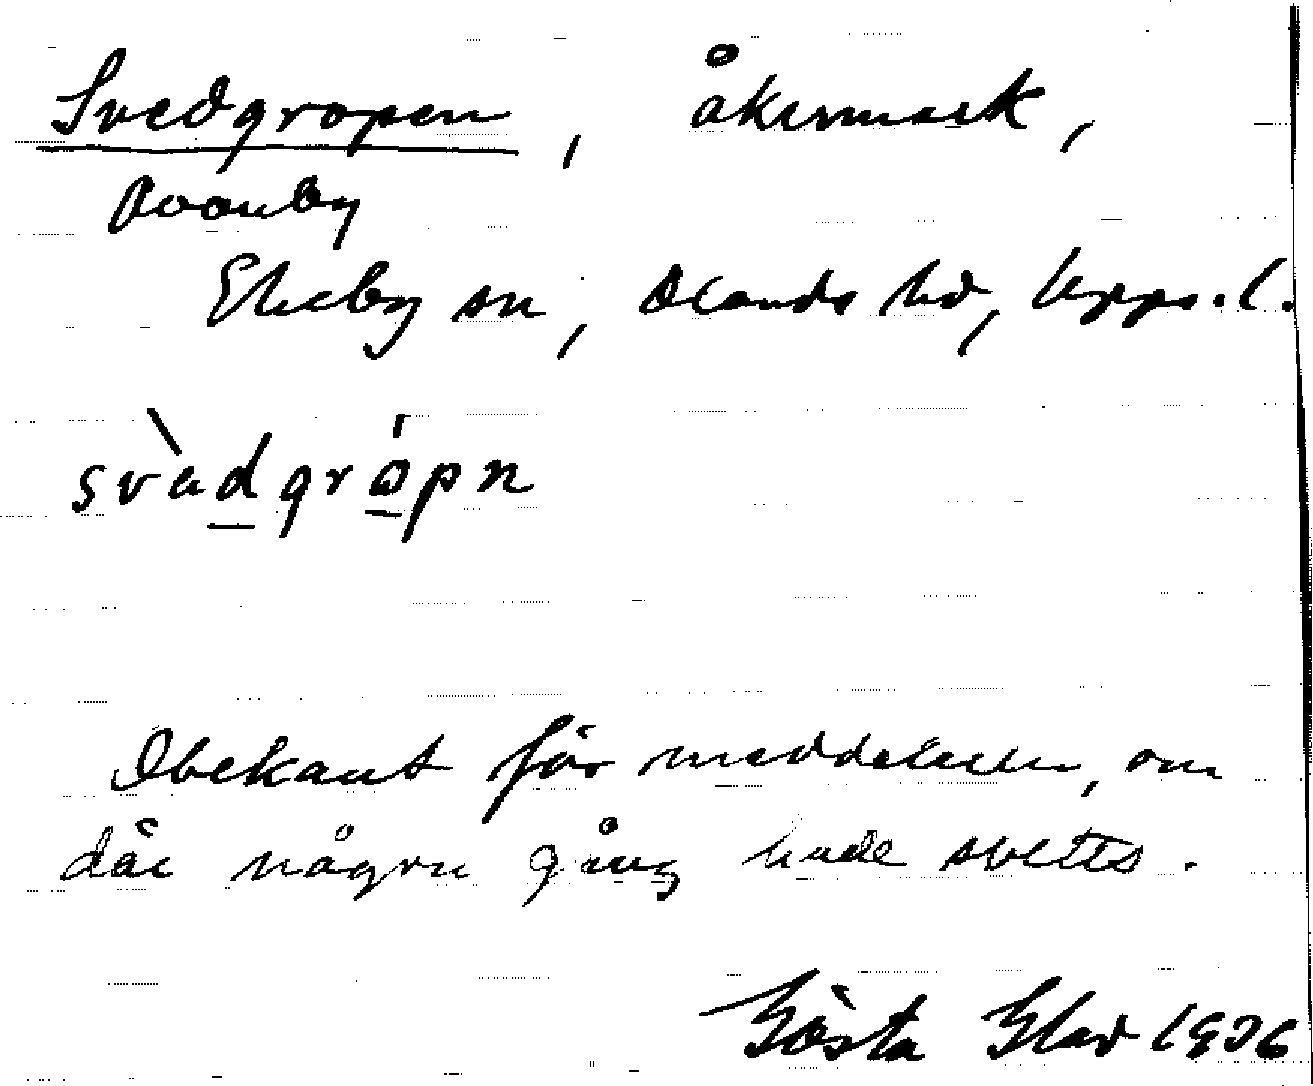 Svedgropen, åkermark,
Ekeby sn, Olands hd, Upps. l.
svàdgrópn
Obekant för meddelaren, om
där någon gång hade svetts.
Gösta Glad 1936